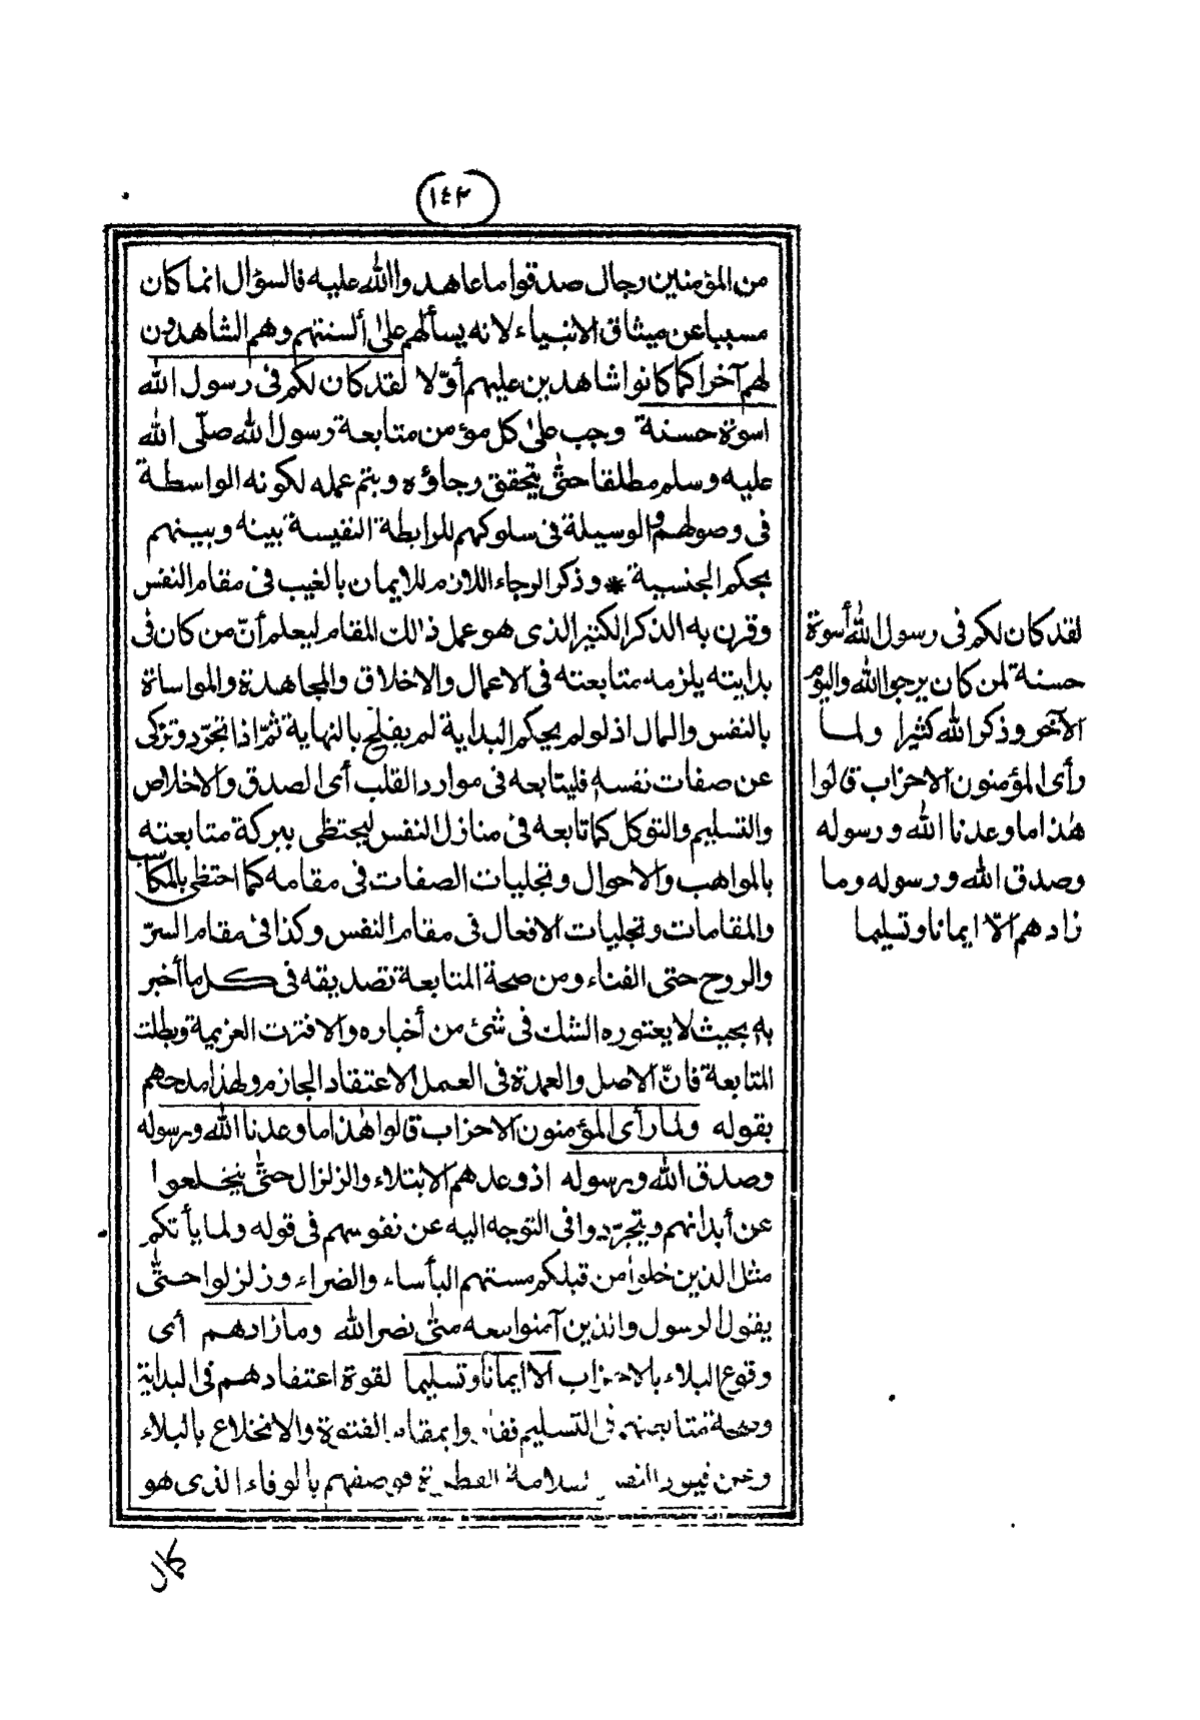 ١٤٢
من المؤمنين رجال صدقوا ما عاهدوا الله عليه فالسؤال انما كان
مسببا عن ميثاق الانبياء لانه يسألهم على ألسنتهم وهم الشاهدون
لهم آخرا كما كانوا شاهدين عليهم أوّلا لقد كان لكم فى رسول الله
اسوة حسنة وجب على كل مؤمن متابعة رسول الله صلّى الله
عليه وسلم مطلقا حتّى يتحقق رجاؤه ويتم عمله لكونه الواسطة
فى وصولهم والوسيلة فى سلوكهم للرابطة النفيسة بينه وبينهم
بحكم الجنسية * وذكر الرجاء اللازم للايمان بالغيب فى مقام النفس
وقرن به الذكر الكثير الذى هو عمل ذلك المقام ليعلم أنّ من كان فى
بدايته يلزمه متابعته فى الاعمال والاخلاق والمجاهدة والمواساة
بالنفس والمال اذ لو لم يحكم البداية لم يفلح بالنهاية ثمّ اذا تجرّد وتزكى
عن صفات نفسه فليتابعه فى موارد القلب أى الصدق والاخلاص
والتسليم والتوكل كما تابعه فى منازل النفس ليحتظى ببركة متابعته
بالمواهب والاحوال وتجليات الصفات فى مقامه كما احتظى بالمكاسب
والمقامات وتجليات الافعال فى مقام النفس وكذا فى مقام السرّ
والروح حتى الفناء ومن صحة المتابعة تصديقه فى كل ما أخبر
به بحيث لا يعتوره الشك فى شئ من أخباره والا فترت العزيمة وبطلت
المتابعة فانّ الاصل والعمدة فى العمل الاعتقاد الجازم ولهذا مدحهم
بقوله ولما رأى المؤمنون الاحزاب قالوا هٰذا ما وعدنا الله ورسوله
وصدق الله ورسوله اذ وعدهم الابتلاء والزلزال حتّى ينخلعوا
عن أبدانهم ويتجرّدوا فى التوجه اليه عن نفوسهم فى قوله ولما يأتكم
مثل الذين خلوا من قبلكم مستهم البأساء والضراء وزلزلوا حتّى
يقول الرسول والذين آمنوا معه متى نصر الله وما زادهم أى
وقوع البلاء بالاحزاب الا ايمانا وتسليما لقوة اعتقادهم فى البداية
وصحة متابعتهم فى التسليم وا بمقام الفتوة والانخلاع بالبلاء
وعن قيود النفس سلامة الفطرة فوصفهم بالوفاء الذى هو
كمال
لقد كان لكم فى رسول الله أسوة
حسنة لمن كان يرجوا الله واليوم
الآخر وذكر الله كثيرا ولما
رأى المؤمنون الاحزاب قالوا
هٰذا ما وعدنا الله ورسوله
وصدق الله ورسوله وما
زادهم الّا ايمانا وتسليما